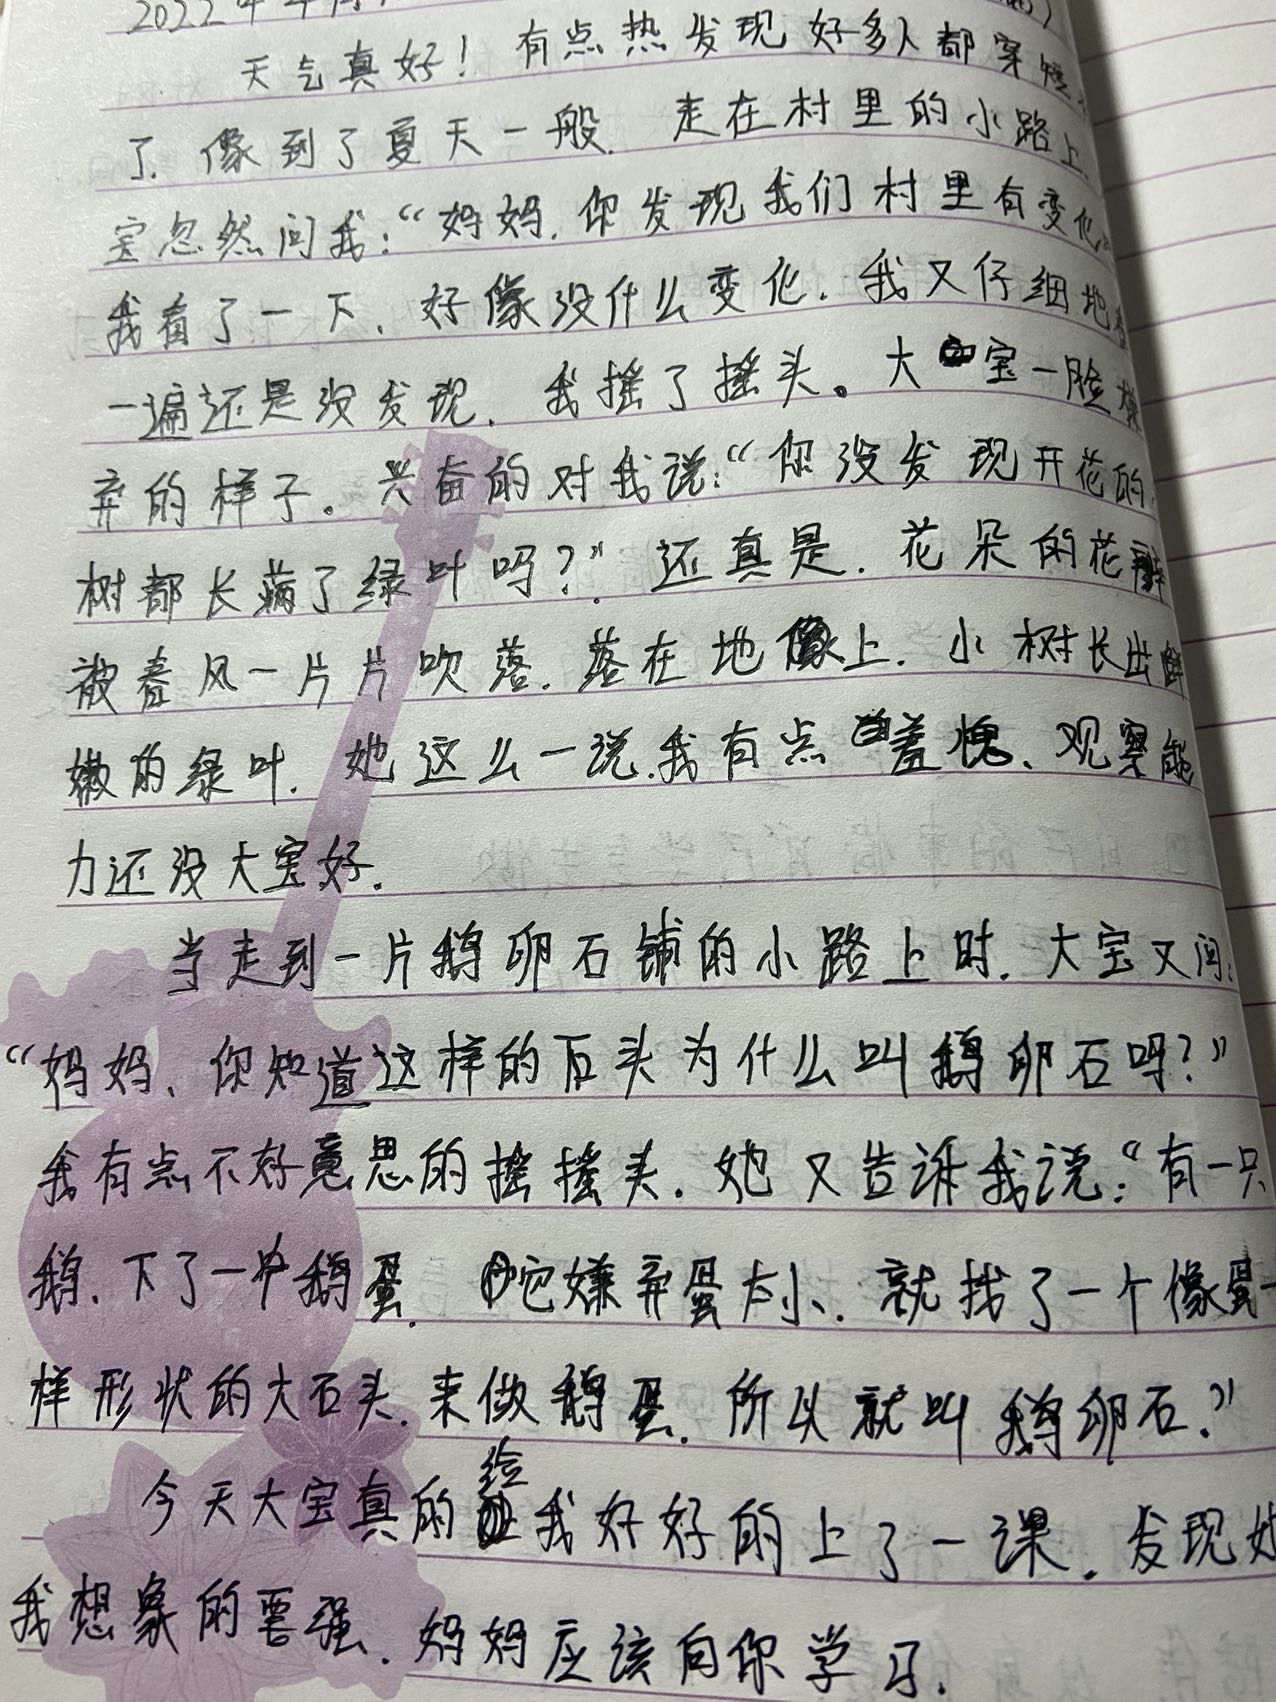 2022年4月
天气真好！有点热发现好多人都穿短
了.像到了夏天一般.走在村里的小路上.
宝忽然问我：“妈妈.你发现我们村里有变化
我看了一下.好像没什么变化.我又仔细地看
一遍还是没发现.我摇了摇头。大宝一脸嫌
弃的样子。兴奋的对我说：“你没发现开花的
树都长满了绿叶吗？”还真是.花朵的花瓣
被春风一片片吹落.落在地上.小树长出鲜
嫩的绿叶.她这么一说.我有点羞愧、观察能
力还没大宝好.
当走到一片鹅卵石铺的小路上时.大宝又问：
“妈妈、你知道这样的石头为什么叫鹅卵石吗？”
我有点不好意思的摇摇头.她又告诉我说：“有一只
鹅.下了一个鹅蛋.它嫌弃蛋太小、就找了一个像蛋一
样形状的大石头.来做鹅蛋.所以就叫鹅卵石.”
今天大宝真的给我好好的上了一课.发现她
我想象的要强.妈妈应该向你学习.